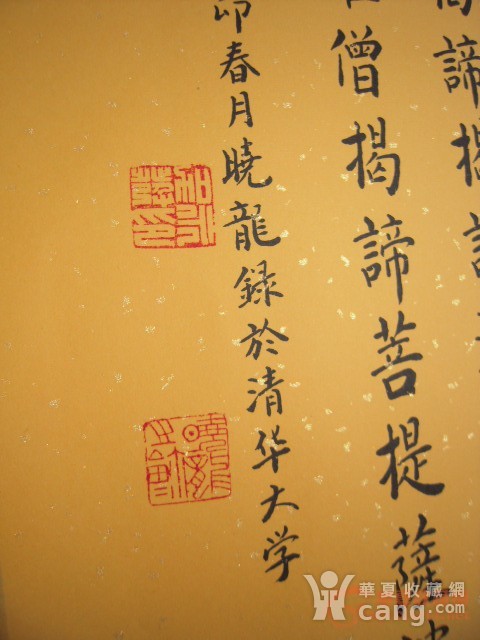 諦揭
僧揭諦菩提薩
春月曉龍録於清华大学
華夏收藏網
cang.com